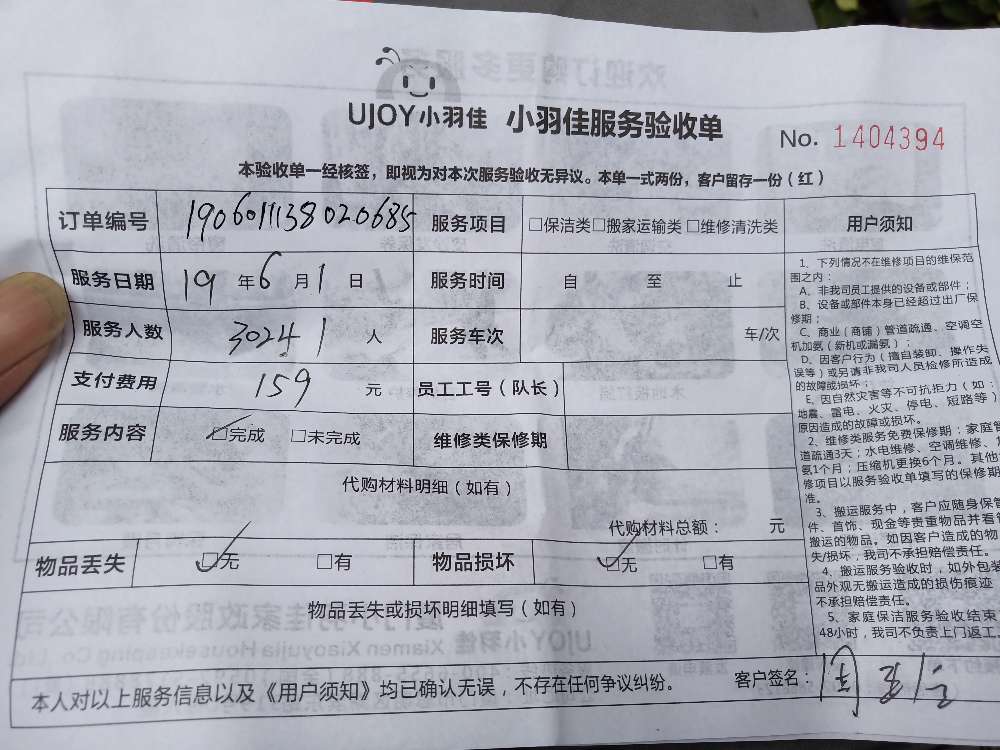 UJOY小羽佳 小羽佳服务验收单
No. 1404394
本验收单一经核签，即视为对本次服务验收无异议。本单一式两份，客户留存一份（红）
订单编号 1906011138020685 服务项目 □保洁类□搬家运输类□维修清洗类
服务日期 19 年 6 月 1 日 服务时间 自 至 止
服务人数 3024 1 人 服务车次 车/次
支付费用 159 元 员工工号（队长）
服务内容 ☑完成 □未完成 维修类保修期
代购材料明细（如有）
代购材料总额： 元
物品丢失 ☑无 □有 物品损坏 ☑无 □有
物品丢失或损坏明细填写（如有）
本人对以上服务信息以及《用户须知》均已确认无误，不存在任何争议纠纷。 客户签名：
用户须知
1、下列情况不在维修项目的维保范
围之内：
A、非我司员工提供的设备或部件；
B、设备或部件本身已经超过出厂保
修期；
C、商业（商铺）管道疏通、空调空
机加氨（新机或漏氨）；
D、因客户行为（擅自装卸、操作失
误等）或另请非我司人员检修所造成
的故障或损坏；
E、因自然灾害等不可抗拒力（如：
地震、雷电、火灾、停电、短路等）
原因造成的故障或损坏。
2、维修类服务免费保修期：家庭管
道疏通3天；水电维修、空调维修、
氨1个月；压缩机更换6个月。其他
修项目以服务验收单填写的保修期
准。
3、搬运服务中，客户应随身保管
件、首饰、现金等贵重物品并看管
搬运的物品。如因客户造成的物
失/损坏，我司不承担赔偿责任。
4、搬运服务验收时，如外包装
品外观无搬运造成的损伤痕迹
不承担赔偿责任。
5、家庭保洁服务验收结束
48小时，我司不负责上门返工
欢迎订购更多服务
小羽佳家政股份有限公司
UJOY小羽佳 Xiamen Xiaoyujia Housekeeping Co., Ltd